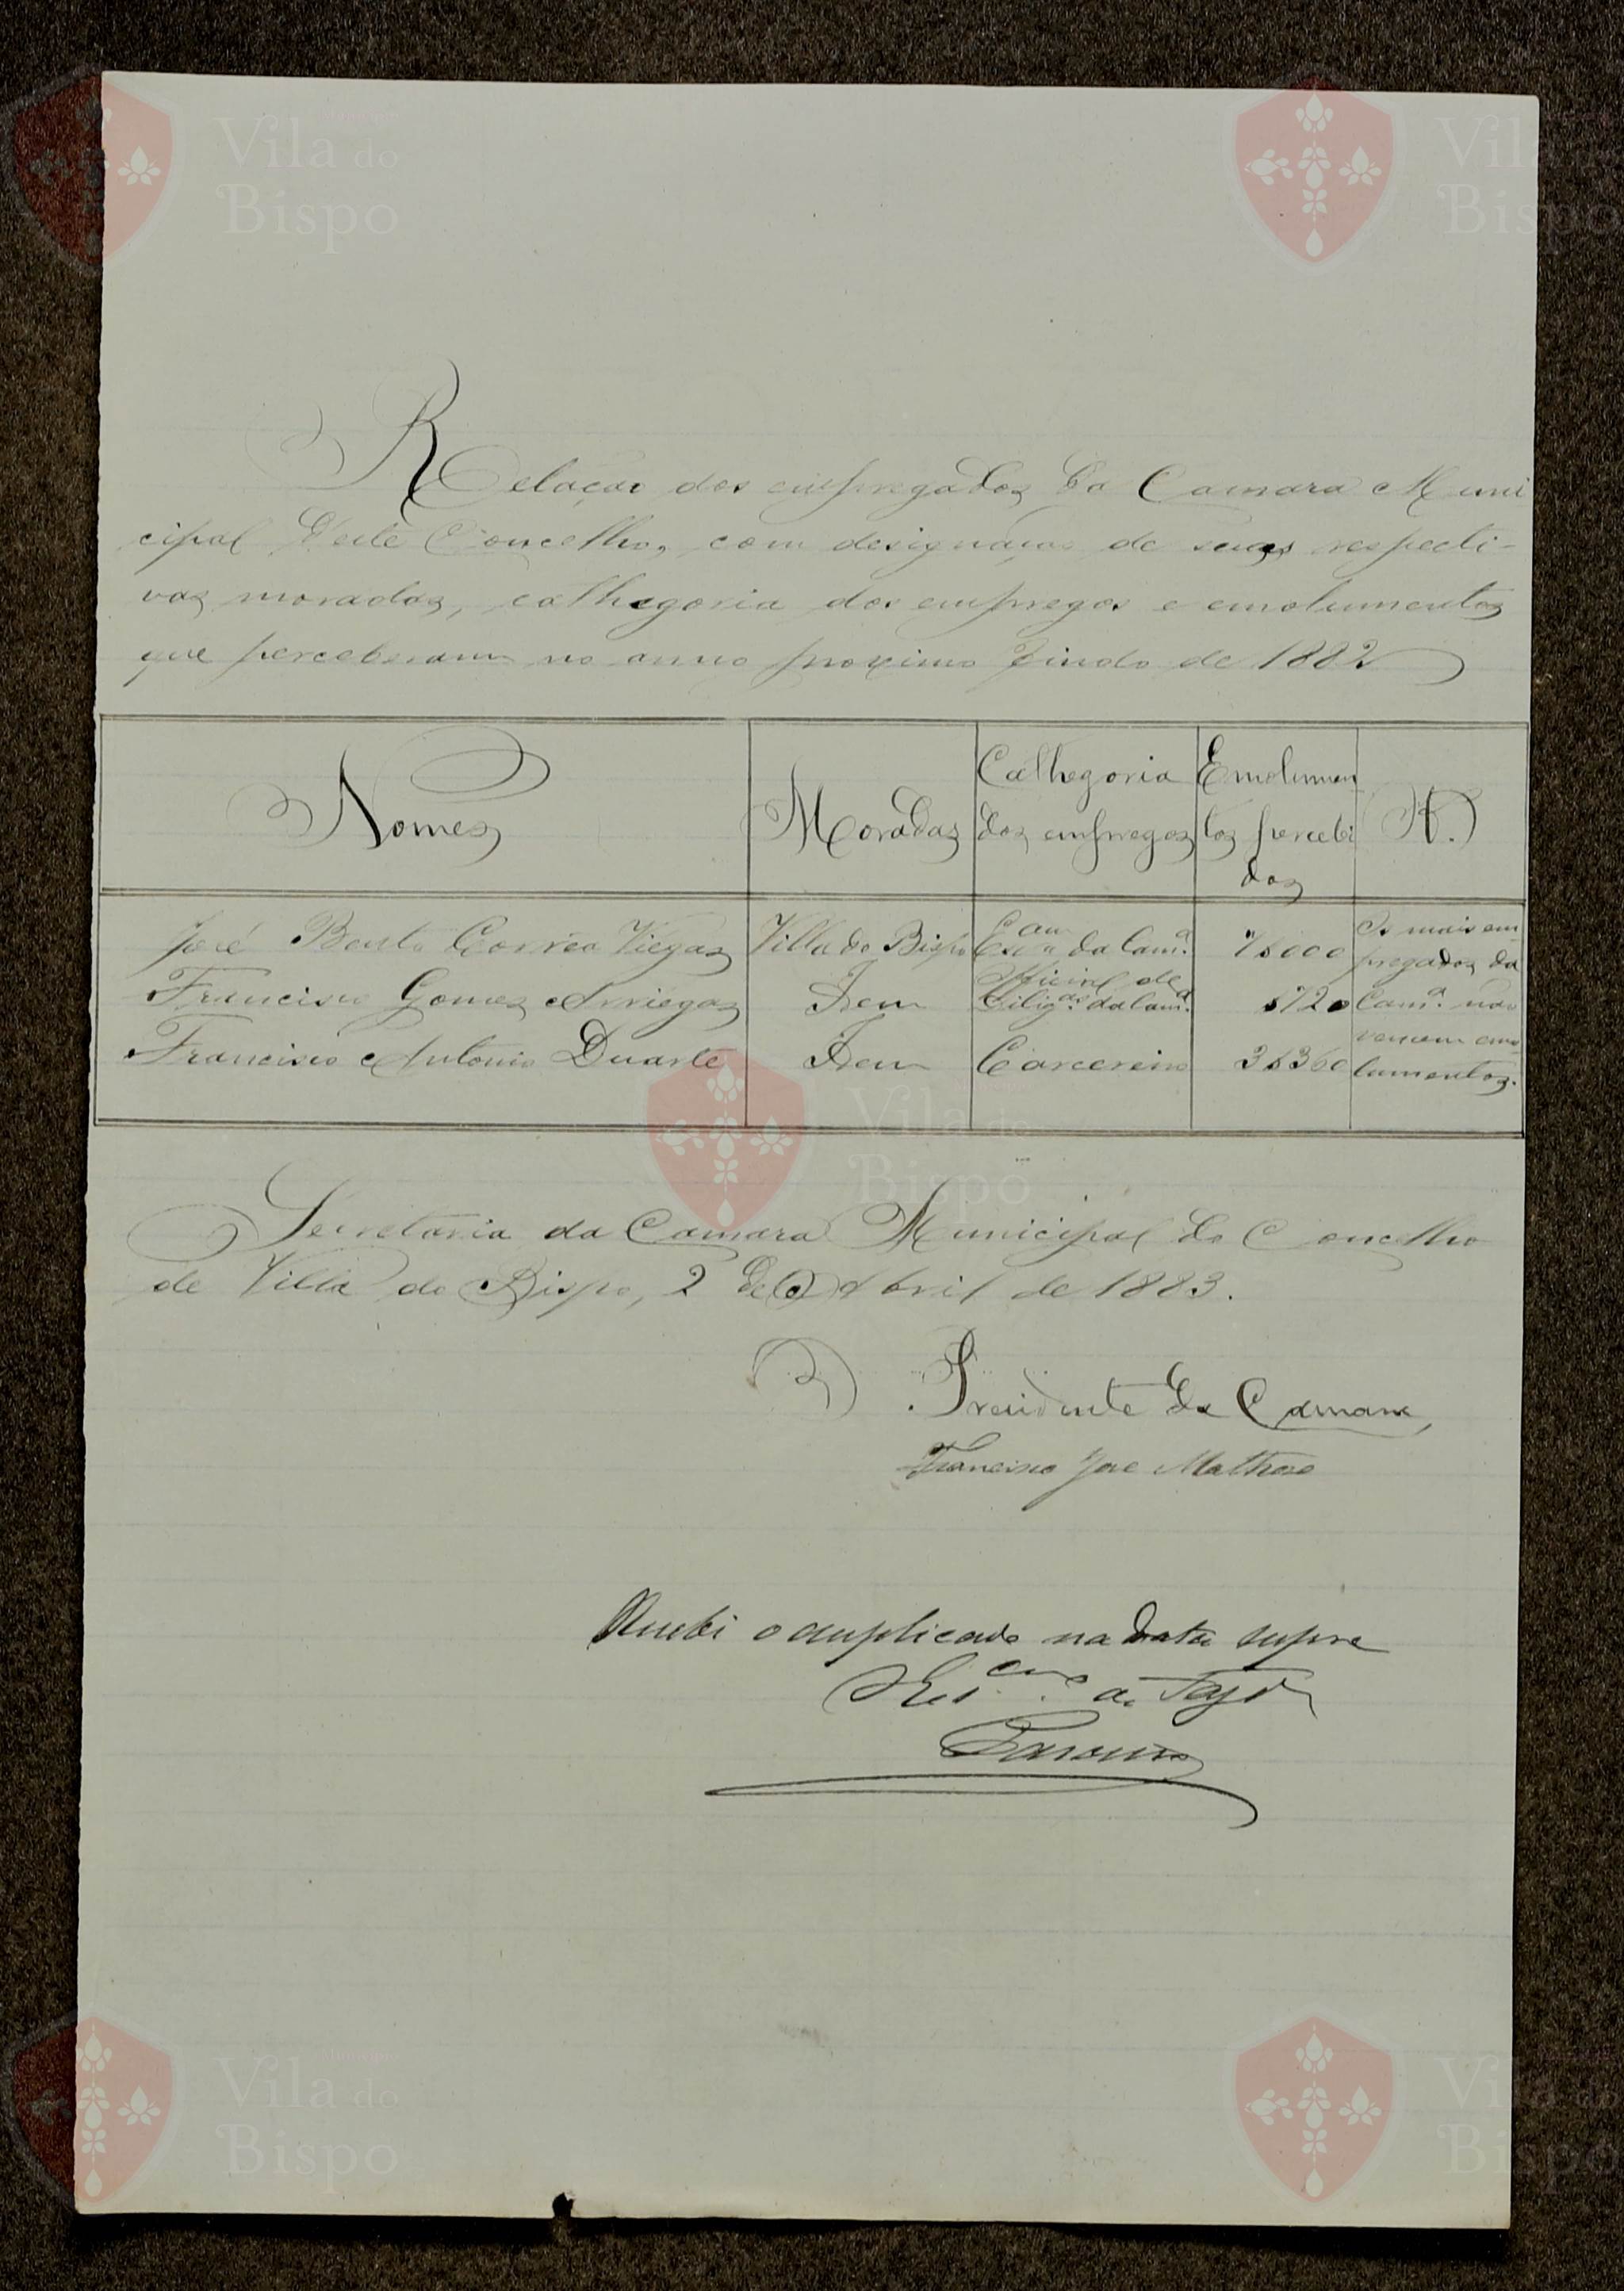 Relação dos empregados da Camara Muni
cipal d'este Concelho, com designação de suas respecti-
vas moradas, cathegoria dos empregos e emolumentos
que perceberam no anno proximo findo de 1882
Nomes
Moradas
Cathegoria
dos empregos
Emolumen
tos percebi
dos
José Bento Correa Viegas
Villa do Bispo
da Cam.ª
Francisco Gomes Arriegas
Idem
Official de
Dilig.as da Cam.ª
$720
Francisco Antonio Duarte
Idem
Carcereiro
3$360
Os mais em
pregados da
Cam.ª não
vencem emo
lumentos.
Secretaria da Camara Municipal do Concelho
de Villa do Bispo, 2 de Abril de 1883.
O Presidente da Camara,
Francisco José Matheos
Recebi o duplicado na data supra
Vila do
Bispo